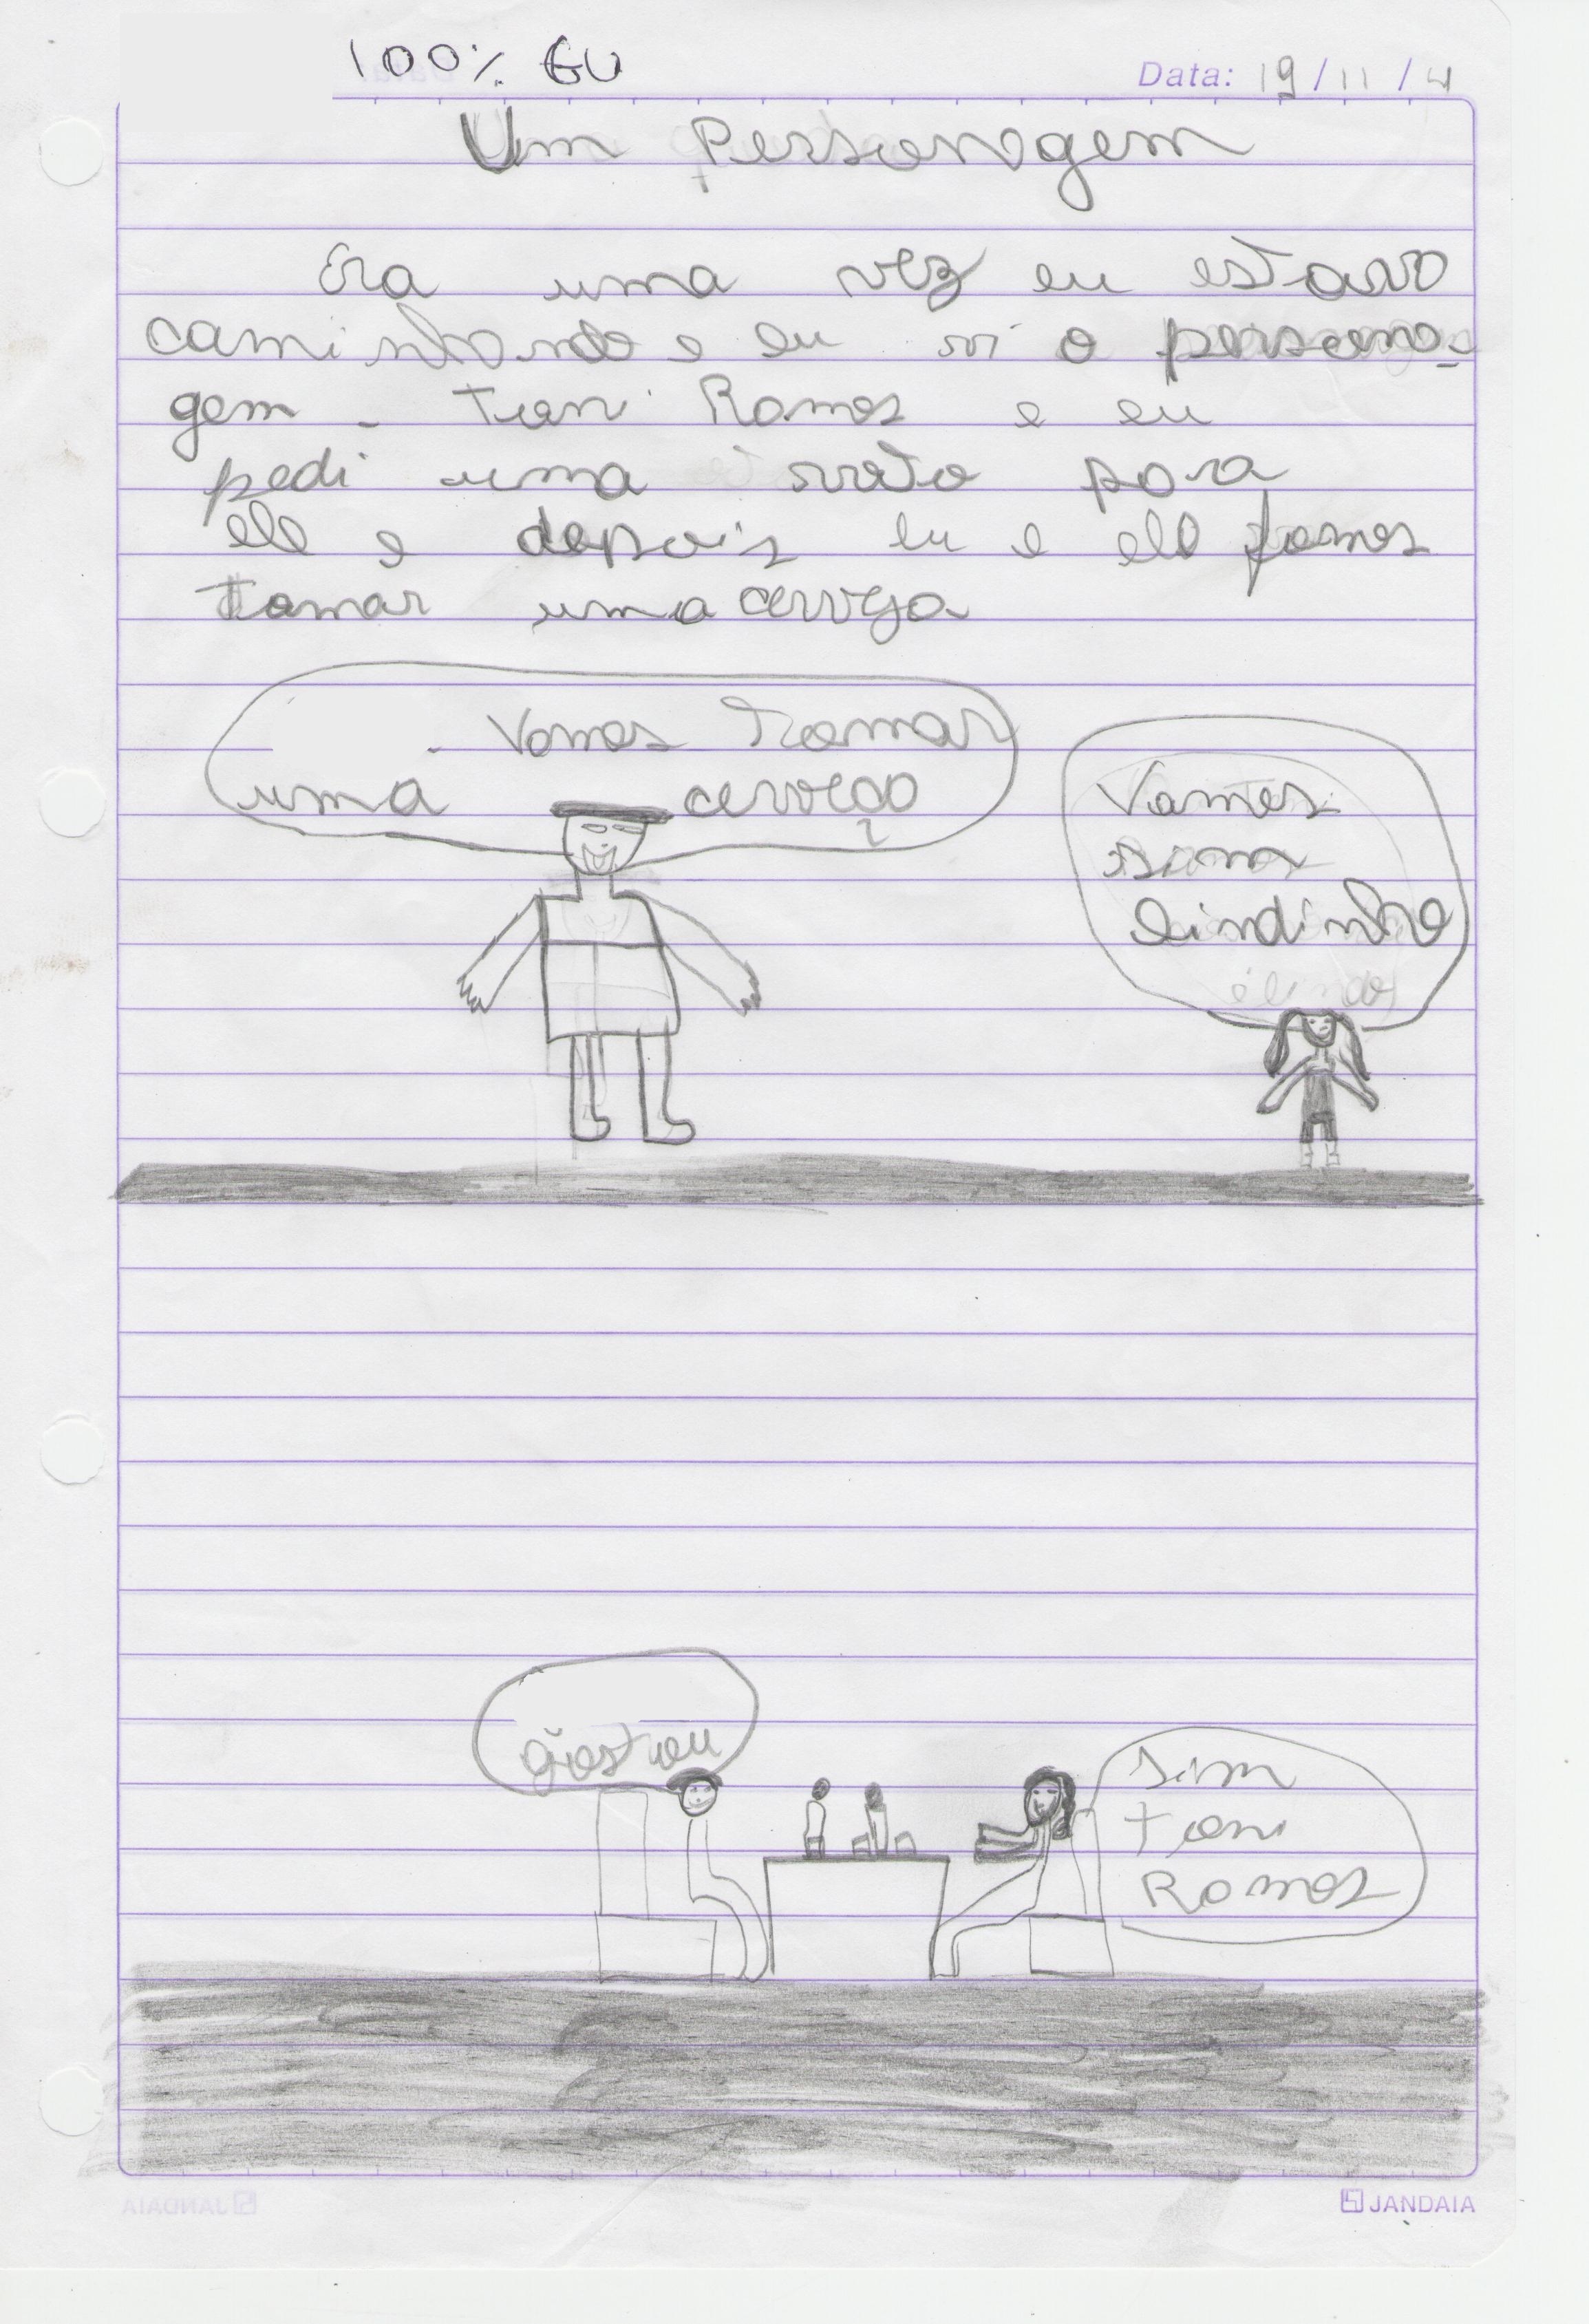 100% EU
Data: 19/11/4
Um Personagem
Era uma vez eu estava
caminhando e eu vi o persona-
gem - Toni Ramos e eu
pedi uma para
ele e depois eu e ele fomos
tomar uma cerveja
- Vamos tomar
uma cerveja
?
Vamos
lindinho
gostou
Sim
toni
Ramos
JANDAIA